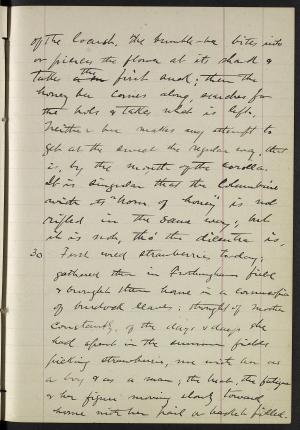 of the Locust. The bumble-bee bites into
or pierces the flower at its shank &
takes the first suck; then the
honey bee comes along, searches for
the hole & takes what is left.
Neither bee makes any attempt to
get at the sweet the regular way, that
is, by the mouth of the corolla.
It is singular that the Columbine
with its "horn of honey" is not
rifled in the same way; but
it is not, tho' the dicentra is.
30 First wild strawberries to-day;
gathered them in field
& brought them home in a cornucopia
of burdock leaves; thought of mother
constantly, of the days & days she
had spent in the summer fields
picking strawberries, me with her as
a boy & as a man; the heat, the fatigue
& her figure moving slowly toward
home with her pail or basket filled.